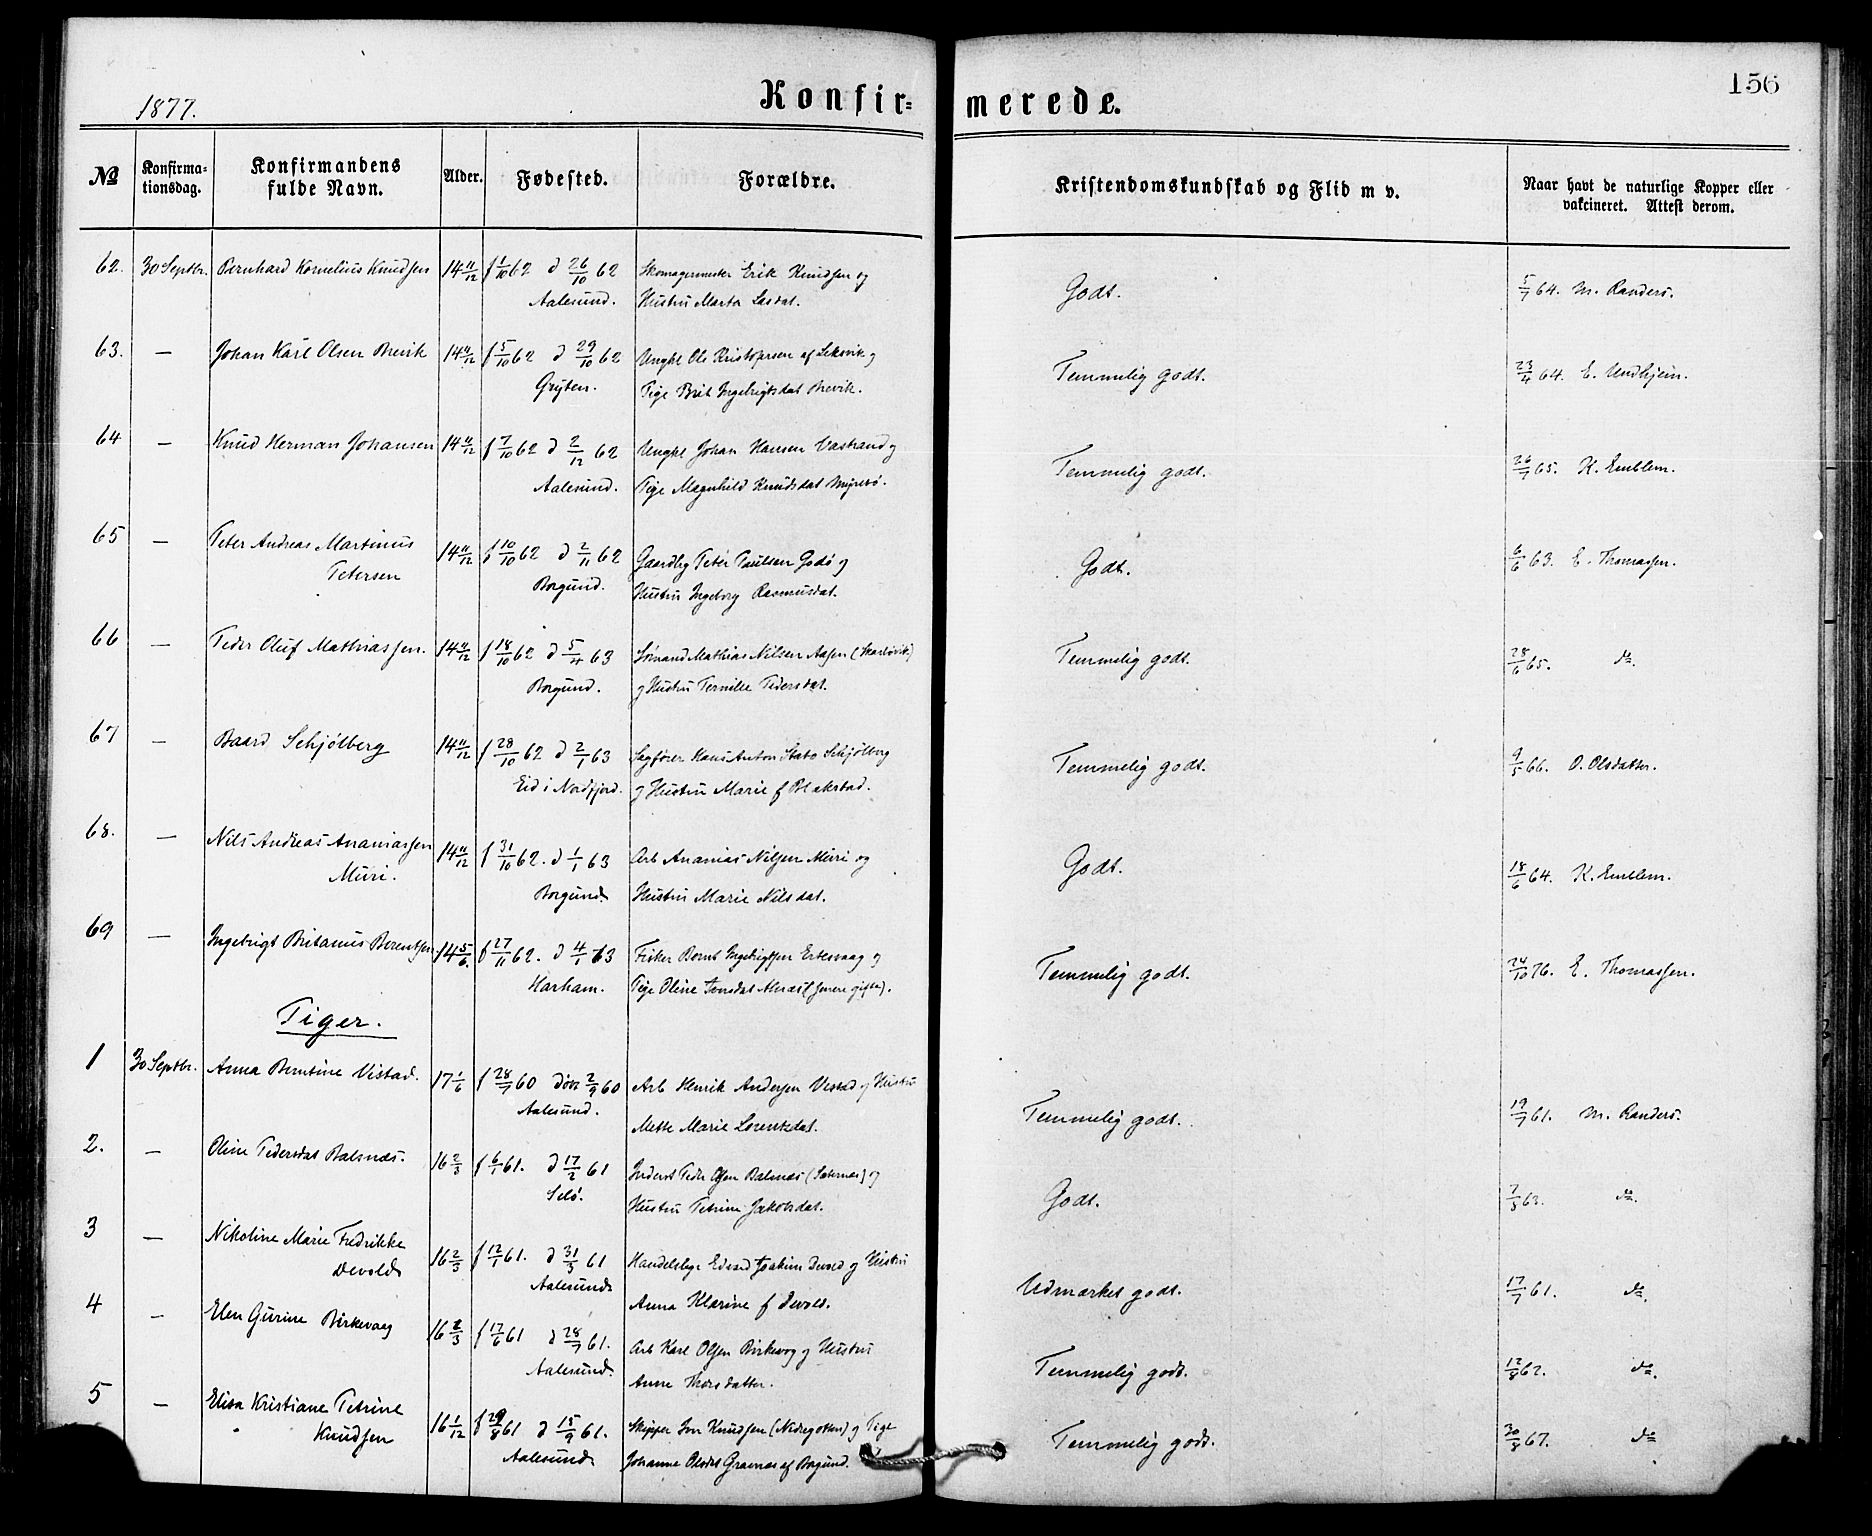 1877.
Konfir= merede.
156
No
Konfirma-
tionsdag.
Konfirmandens
fulde Navn.
Alder.
Fødested.
Forældre.
Kristendomskundskab og Flid m v.
Naar havt de naturlige Kopper eller
vakcineret. Attest derom.
62. 30 Septbr. Bernhard Kornelius Knudsen 14 11/12 f 1/10 62 d 26/10 62 Skomagermester Erik Knudsen og
Aalesund. Hustru Marta Lasdat. Godt. 5/7 64. M. Randers.
63. — Johan Karl Olsen Brevik 14 11/12 f 5/10 62 d 29/10 62 Ungkl Ole Kristofersen af Leksvik og
Gryten. Pige Brit Ingebrigtsdat Brevik. Temmelig godt. 23/4 64. E. Undhjem.
64 — Knud Herman Johansen 14 11/12 f 7/10 62 d 2/12 62 Ungkl Johan Hansen Vastrand og
Aalesund. Pige Magnhild Knudsdat Myrebø. Temmelig godt. 26/7 65. K. Emblem.
65 — Peter Andreas Martinus
Petersen 14 11/12 f 10/10 62 d 2/11 62 Gaardbg Peter Paulsen Godø og
Borgund. Hustru Ingeborg Rasmusdat. Godt. 6/6 63. E. Thomassen.
66 — Peder Oluf Mathiassen. 14 11/12 f 18/10 62 d 5/4 63 Sømand Mathias Nilsen Aasen (Skarbøvik)
Borgund. og Hustru Pernille Pedersdat. Temmelig godt. 28/6 65. do.
67 — Baard Schjølberg 14 11/12 f 28/10 62 d 2/1 63 Sagfører Hans Anton Stabo Schjølberg
Eid i Nordfjord. og Hustru Marie f Blakstad. Temmelig godt. 9/5 66. O. Olsdatter.
68. — Nils Andreas Ananiassen
Muri. 14 11/12 f 31/10 62. d 1/1 63 Arb Ananias Nilsen Muri og
Borgund. Hustru Marie Nilsdat. Godt. 18/6 64. K. Emblem.
69 — Ingebrigt Britanus Berentsen 14 5/6. f 27/11 62. d 4/1 63 Fisker Bernt Ingebrigtsen Ertesvaag og
Harham. Pige Oline Jensdat (senere gifte). Temmelig godt. 24/10 76. E. Thomassen.
Piger.
1 30 Septbr. Anna Berntine Vistad. 17 1/6 f 28/7 60 døbt 2/9 60 Arb Henrik Andersen Vestad og Hustru
Aalesund. Mette Marie Lorentsdat. Temmelig godt. 19/7 61. M. Randers.
2. — Oline Pedersdat Balsnæs. 16 2/3 f 6/1 61. d 17/2 61 Inderst Peder Olsen Balsnæs og
Selø. Hustru Petrine Jakobsdat. Godt. 7/5 63. do.
3 — Nikoline Marie Fredrikke
Devold 16 2/3 f 12/1 61. d 31/3 61 Handelsbge Edvard Joakim Devold og Hustru
Aalesund Anna Klarine f Devold. Udmærket godt. 17/7 61. do.
4 — Elen Gurine Birkevaag 16 2/3 f 17/6 61 d 28/7 61. Arb Karl Olsen Birkevog og Hustru
Aalesund. Anne Thorsdatter. Temmelig godt. 12/8 62. do.
5 — Elisa Kristiane Petrine
Knudsen 16 1/12 f 29/8 61 d 15/9 61. Skipper Jon Knudsen (Nedregotten) og Pige
Aalesund Johanne Olsdat Gravnæs af Borgund. Temmelig godt. 30/8 67. do